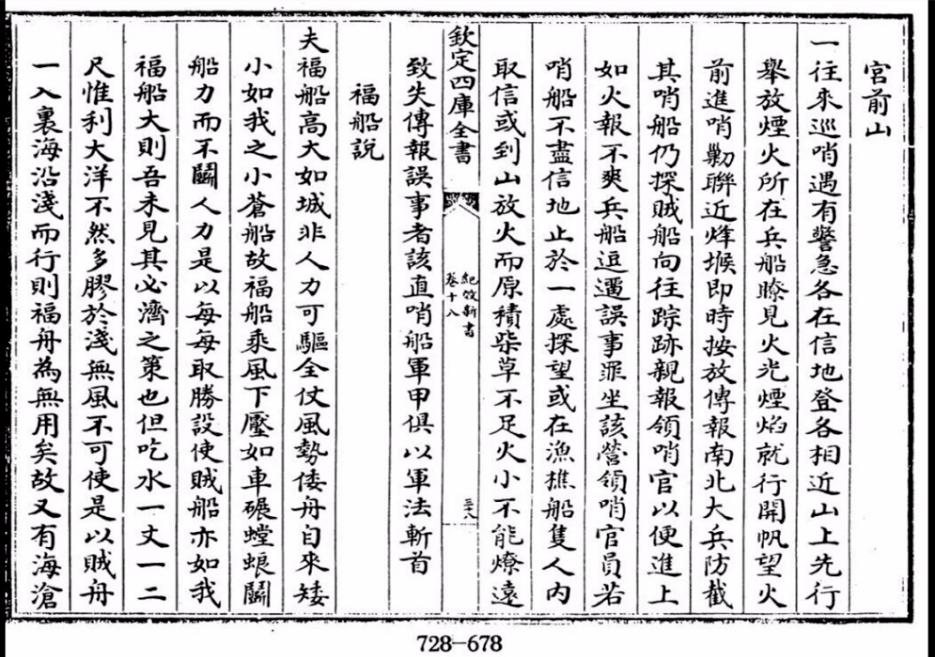 官前山
一往來巡哨遇有警急各在信地登各相近山上先行
舉放煙火所在兵船瞭見火光煙焰就行開帆望火
前進哨勦聯近烽堠即時按放傳報南北大兵防截
其哨船仍探賊船向往踪跡親報領哨官以便進上
如火報不爽兵船逗遛誤事罪坐該營領哨官員若
哨船不盡信地止於一處探望或在漁樵船隻人内
取信或到山放火而原積柴草不足火小不能燎遠
欽定四庫全書
紀效新書
卷十八
致失傳報誤事者該直哨船軍甲俱以軍法斬首
福船說
夫福船高大如城非人力可驅全仗風勢倭舟自來矮
小如我之小蒼船故福船乘風下壓如車碾螳蜋鬭
船力而不鬭人力是以每每取勝設使賊船亦如我
福船大則吾未見其必濟之策也但吃水一丈一二
尺惟利大洋不然多膠於淺無風不可使是以賊舟
一入裏海沿淺而行則福舟為無用矣故又有海滄
728-678